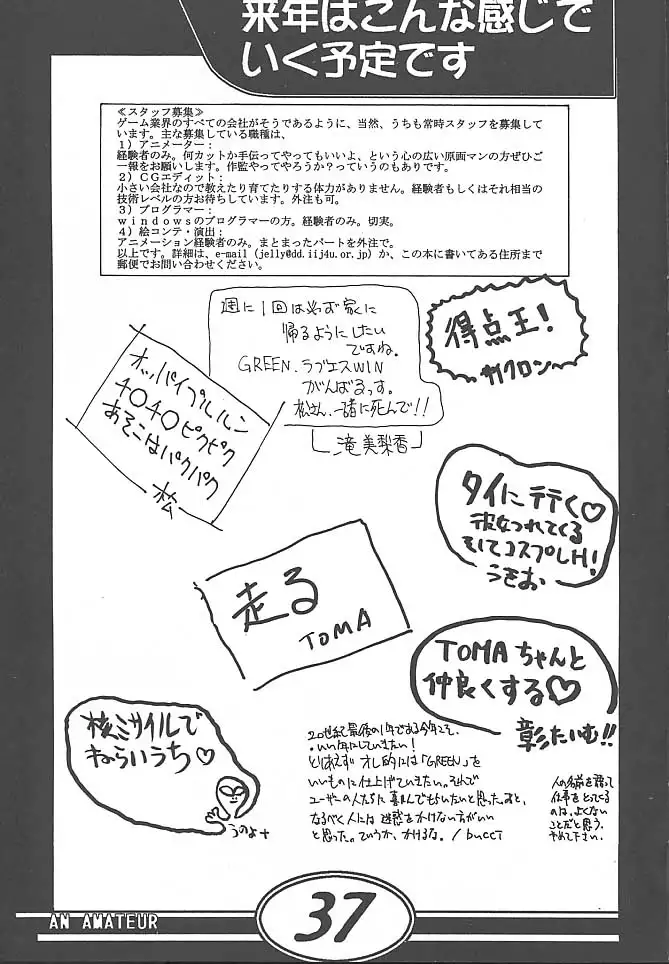 来年はこんな感じで
いく予定です
≪スタッフ募集≫
ゲーム業界のすべての会社がそうであるように、当然、うちも常時スタッフを募集して
います。主な募集している職種は、
1）アニメーター：
経験者のみ。何カットか手伝ってやってもいいよ、という心の広い原画マンの方ぜひご
一報をお願いします。作監やってやろうか？っていうのもありです。
2）CGエディット：
小さい会社なので教えたり育てたりする体力がありません。経験者もしくはそれ相当の
技術レベルの方お待ちしています。外注も可。
3）プログラマー：
ｗｉｎｄｏｗｓのプログラマーの方。経験者のみ。切実。
4）絵コンテ・演出：
アニメーション経験者のみ。まとまったパートを外注で。
以上です。詳細は、e-mail（jelly@dd.iij4u.or.jp）か、この本に書いてある住所まで
郵便でお問い合わせください。
週に1回は必ず家に
帰るようにしたい
ですね。
GREEN、ラブエスWIN
がんばるっす。
松さん、一緒に死んで!!
滝美梨香
得点王!
サイクロン〜
オッパイプルルン
4040ピクピク
あそこはパクパク
松
タイに行く♡
彼女つれてくる
そしてコスプレH!
うきお
走る
TOMA
TOMAちゃんと
仲良くする♡
彰たいむ!!
核ミサイルで
ねらいうち♡
うのよ+
20世紀最後の1年である今年こそ、
いい年にしていきたい!
とりあえず オレ的には「GREEN」を
いいものに仕上げていきたい。それで
ユーザーの人たちに喜んでもらいたいと思った。あと、
なるべく人には迷惑をかけない方がいい
と思った。ていうか、かけるな。/bucci
人の名前を語って
仕事をとっている
のは、よくない
ことだと思う。
やめて下さい。
AN AMATEUR
37